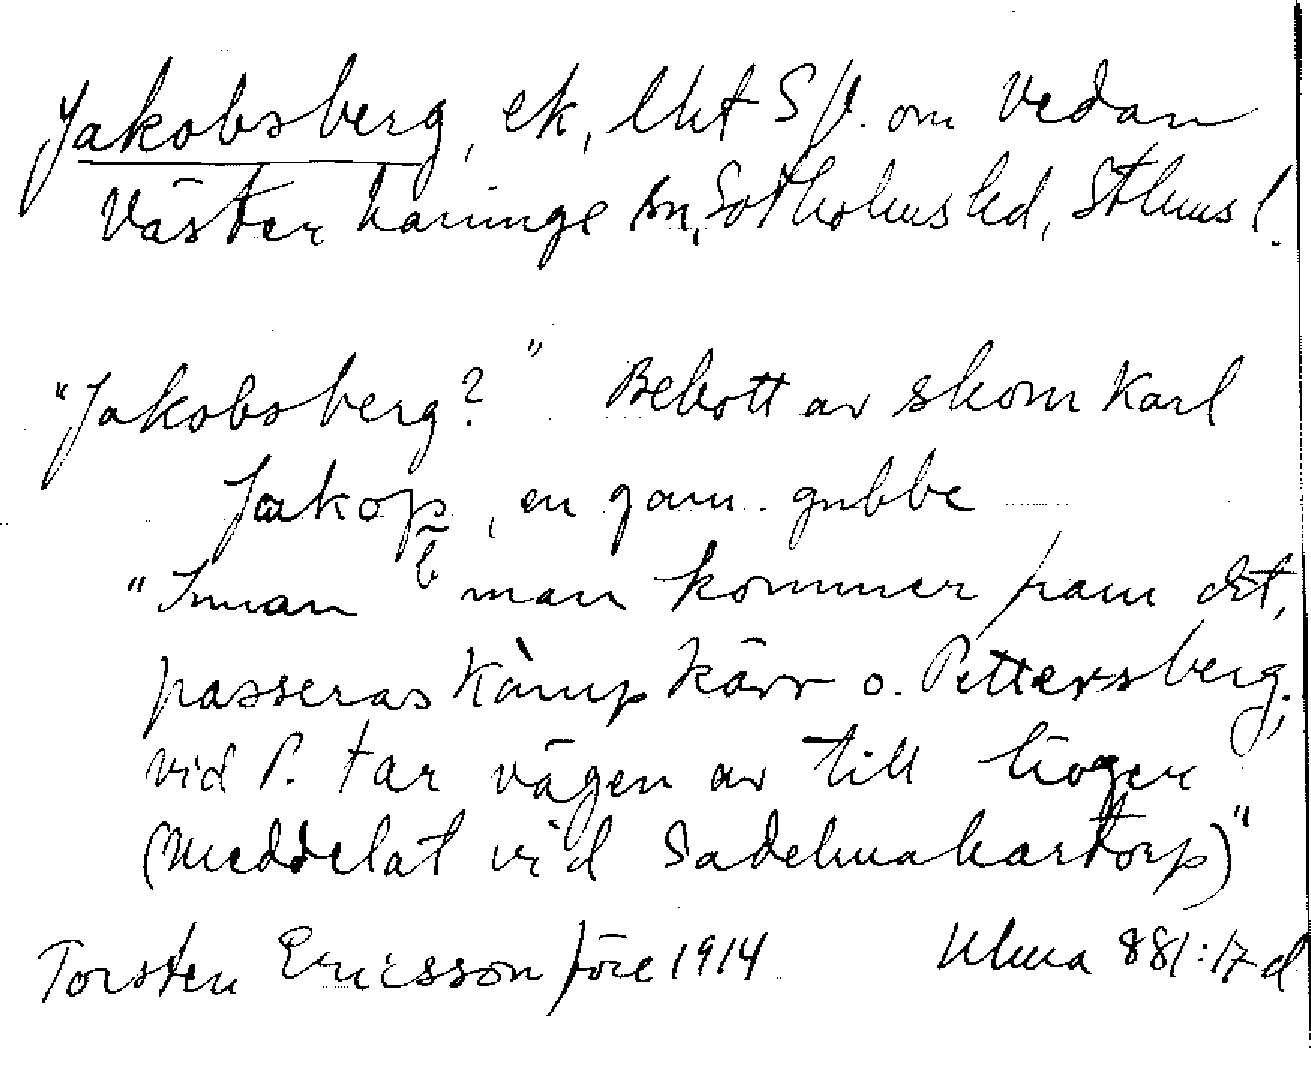 Jakobsberg, ek, Uht S/V. om Vedan
Väster haninge sn, Sotholms hd, Sthlms l.
"Jakobsberg?". Bebott av skom Karl
Jakop, en gam. gubbe
b
"Innan man kommer fram dit,
passeras Kàmpkärr o. Pettersberg;
vid P. tar vägen av till höger
(Meddelat vid Sadelmakartorp)"
Torsten Ericsson före 1914 Ulma 881:17 d